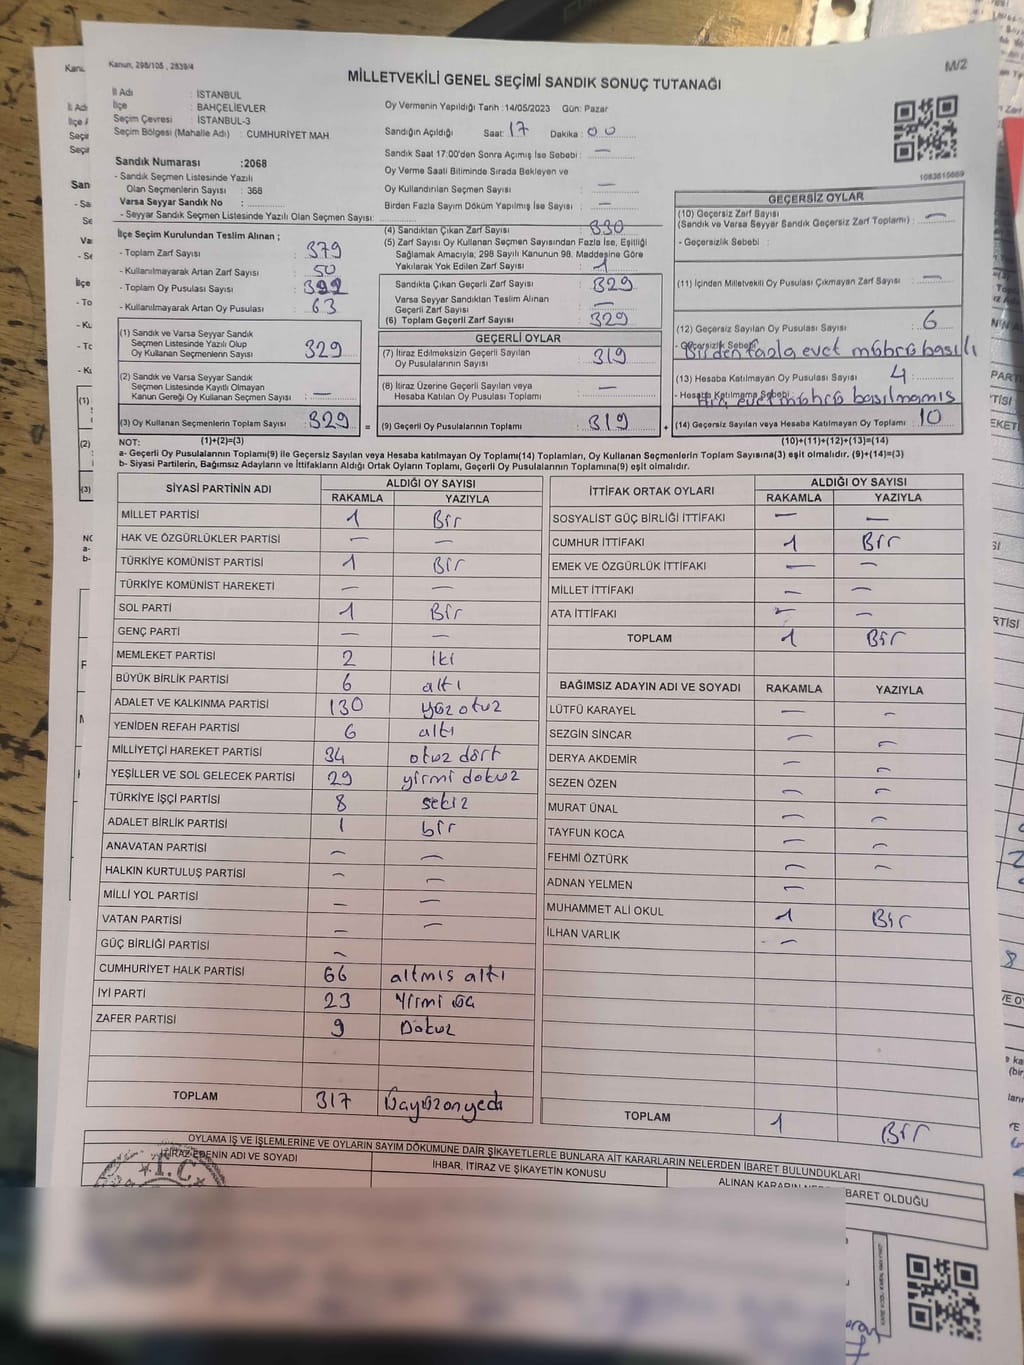 Kanun, 298/105 , 2839/4
M/2
MİLLETVEKİLİ GENEL SEÇİMİ SANDIK SONUÇ TUTANAĞI
İl Adı : İSTANBUL
İlçe : BAHÇELİEVLER
Seçim Çevresi : İSTANBUL-3
Seçim Bölgesi (Mahalle Adı) : CUMHURİYET MAH.
Sandık Numarası :2068
- Sandık Seçmen Listesinde Yazılı
Olan Seçmenlerin Sayısı : 368
Varsa Seyyar Sandık No :
- Seyyar Sandık Seçmen Listesinde Yazılı Olan Seçmen Sayısı:
Oy Vermenin Yapıldığı Tarih :14/05/2023 Gün: Pazar
Sandığın Açıldığı Saat: 17 Dakika : 00
Sandık Saat 17:00'den Sonra Açılmış İse Sebebi : —
Oy Verme Saati Bitiminde Sırada Bekleyen ve
Oy Kullandırılan Seçmen Sayısı : —
Birden Fazla Sayım Döküm Yapılmış İse Sayısı : —
1083615669
İlçe Seçim Kurulundan Teslim Alınan ;
- Toplam Zarf Sayısı : 379
- Kullanılmayarak Artan Zarf Sayısı : 50
- Toplam Oy Pusulası Sayısı : 392
- Kullanılmayarak Artan Oy Pusulası : 63
(1) Sandık ve Varsa Seyyar Sandık
Seçmen Listesinde Yazılı Olup
Oy Kullanan Seçmenlerin Sayısı : 329
(2) Sandık ve Varsa Seyyar Sandık
Seçmen Listesinde Kayıtlı Olmayan
Kanun Gereği Oy Kullanan Seçmen Sayısı : —
(3) Oy Kullanan Seçmenlerin Toplam Sayısı : 329
(4) Sandıktan Çıkan Zarf Sayısı : 330
(5) Zarf Sayısı Oy Kullanan Seçmen Sayısından Fazla İse, Eşitliği
Sağlamak Amacıyla; 298 Sayılı Kanunun 98. Maddesine Göre
Yakılarak Yok Edilen Zarf Sayısı : 1
Sandıkta Çıkan Geçerli Zarf Sayısı : 329
Varsa Seyyar Sandıktan Teslim Alınan
Geçerli Zarf Sayısı : —
(6) Toplam Geçerli Zarf Sayısı : 329
GEÇERLİ OYLAR
(7) İtiraz Edilmeksizin Geçerli Sayılan
Oy Pusulalarının Sayısı : 319
(8) İtiraz Üzerine Geçerli Sayılan veya
Hesaba Katılan Oy Pusulası Toplamı : —
= (9) Geçerli Oy Pusulalarının Toplamı : 319 +
GEÇERSİZ OYLAR
(10) Geçersiz Zarf Sayısı
(Sandık ve Varsa Seyyar Sandık Geçersiz Zarf Toplamı) : —
- Geçersizlik Sebebi :
(11) İçinden Milletvekili Oy Pusulası Çıkmayan Zarf Sayısı : —
(12) Geçersiz Sayılan Oy Pusulası Sayısı : 6
- Geçersizlik Sebebi : Birden fazla evet mührü basılı
(13) Hesaba Katılmayan Oy Pusulası Sayısı : 4
- Hesaba Katılmama Sebebi : Hiç evet mührü basılmamış
(14) Geçersiz Sayılan veya Hesaba Katılmayan Oy Toplamı : 10
NOT: (1)+(2)=(3)
(10)+(11)+(12)+(13)=(14)
a- Geçerli Oy Pusulalarının Toplamı(9) ile Geçersiz Sayılan veya Hesaba katılmayan Oy Toplamı(14) Toplamları, Oy Kullanan Seçmenlerin Toplam Sayısına(3) eşit olmalıdır. (9)+(14)=(3)
b- Siyasi Partilerin, Bağımsız Adayların ve İttifakların Aldığı Ortak Oyların Toplamı, Geçerli Oy Pusulalarının Toplamına(9) eşit olmalıdır.
SİYASİ PARTİNİN ADI ALDIĞI OY SAYISI
RAKAMLA YAZIYLA
MİLLET PARTİSİ 1 Bir
HAK VE ÖZGÜRLÜKLER PARTİSİ — —
TÜRKİYE KOMÜNİST PARTİSİ 1 Bir
TÜRKİYE KOMÜNİST HAREKETİ — —
SOL PARTİ 1 Bir
GENÇ PARTİ — —
MEMLEKET PARTİSİ 2 iki
BÜYÜK BİRLİK PARTİSİ 6 altı
ADALET VE KALKINMA PARTİSİ 130 yüz otuz
YENİDEN REFAH PARTİSİ 6 altı
MİLLİYETÇİ HAREKET PARTİSİ 34 otuz dört
YEŞİLLER VE SOL GELECEK PARTİSİ 29 yirmi dokuz
TÜRKİYE İŞÇİ PARTİSİ 8 sekiz
ADALET BİRLİK PARTİSİ 1 bir
ANAVATAN PARTİSİ — —
HALKIN KURTULUŞ PARTİSİ — —
MİLLİ YOL PARTİSİ — —
VATAN PARTİSİ — —
GÜÇ BİRLİĞİ PARTİSİ —
CUMHURİYET HALK PARTİSİ 66 altmış altı
İYİ PARTİ 23 Yirmi üç
ZAFER PARTİSİ 9 Dokuz
TOPLAM 317 Üçyüzonyedi
İTTİFAK ORTAK OYLARI ALDIĞI OY SAYISI
RAKAMLA YAZIYLA
SOSYALİST GÜÇ BİRLİĞİ İTTİFAKI — —
CUMHUR İTTİFAKI 1 Bir
EMEK VE ÖZGÜRLÜK İTTİFAKI — —
MİLLET İTTİFAKI — —
ATA İTTİFAKI — —
TOPLAM 1 Bir
BAĞIMSIZ ADAYIN ADI VE SOYADI RAKAMLA YAZIYLA
LÜTFÜ KARAYEL — —
SEZGİN SİNCAR — —
DERYA AKDEMİR — —
SEZEN ÖZEN — —
MURAT ÜNAL — —
TAYFUN KOCA — —
FEHMİ ÖZTÜRK — —
ADNAN YELMEN —
MUHAMMET ALİ OKUL 1 Bir
İLHAN VARLIK —
TOPLAM 1 Bir
OYLAMA İŞ VE İŞLEMLERİNE VE OYLARIN SAYIM DÖKÜMÜNE DAİR ŞİKAYETLERLE BUNLARA AİT KARARLARIN NELERDEN İBARET BULUNDUKLARI
İTİRAZ EDENİN ADI VE SOYADI
İHBAR, İTİRAZ VE ŞİKAYETİN KONUSU
ALINAN KARARIN İBARET OLDUĞU
T.C